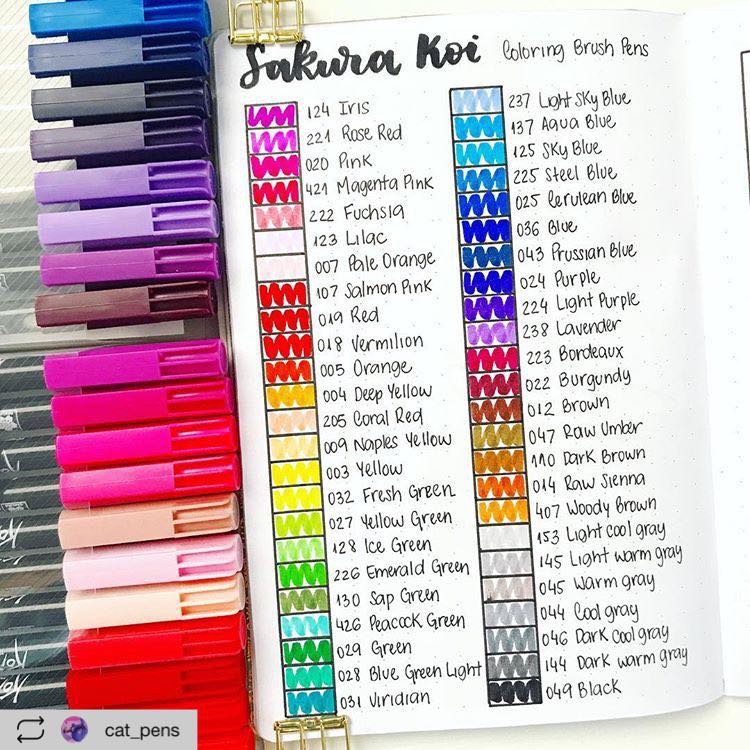 Sakura Koi Coloring Brush Pens
124 Iris
221 Rose Red
020 Pink
421 Magenta Pink
222 Fuchsia
123 Lilac
007 Pale Orange
107 Salmon Pink
019 Red
018 Vermilion
005 Orange
004 Deep Yellow
205 Coral Red
009 Naples Yellow
003 Yellow
032 Fresh Green
027 Yellow Green
128 Ice Green
226 Emerald Green
130 Sap Green
426 Peacock Green
029 Green
028 Blue Green Light
031 Viridian
237 Light Sky Blue
137 Aqua Blue
125 Sky Blue
225 Steel Blue
025 Cerulean Blue
036 Blue
043 Prussian Blue
024 Purple
224 Light Purple
238 Lavender
223 Bordeaux
022 Burgundy
012 Brown
047 Raw Umber
110 Dark Brown
014 Raw Sienna
407 Woody Brown
153 Light cool gray
145 Light warm gray
045 Warm gray
044 Cool gray
046 Dark Cool gray
144 Dark warm gray
049 Black
cat_pens